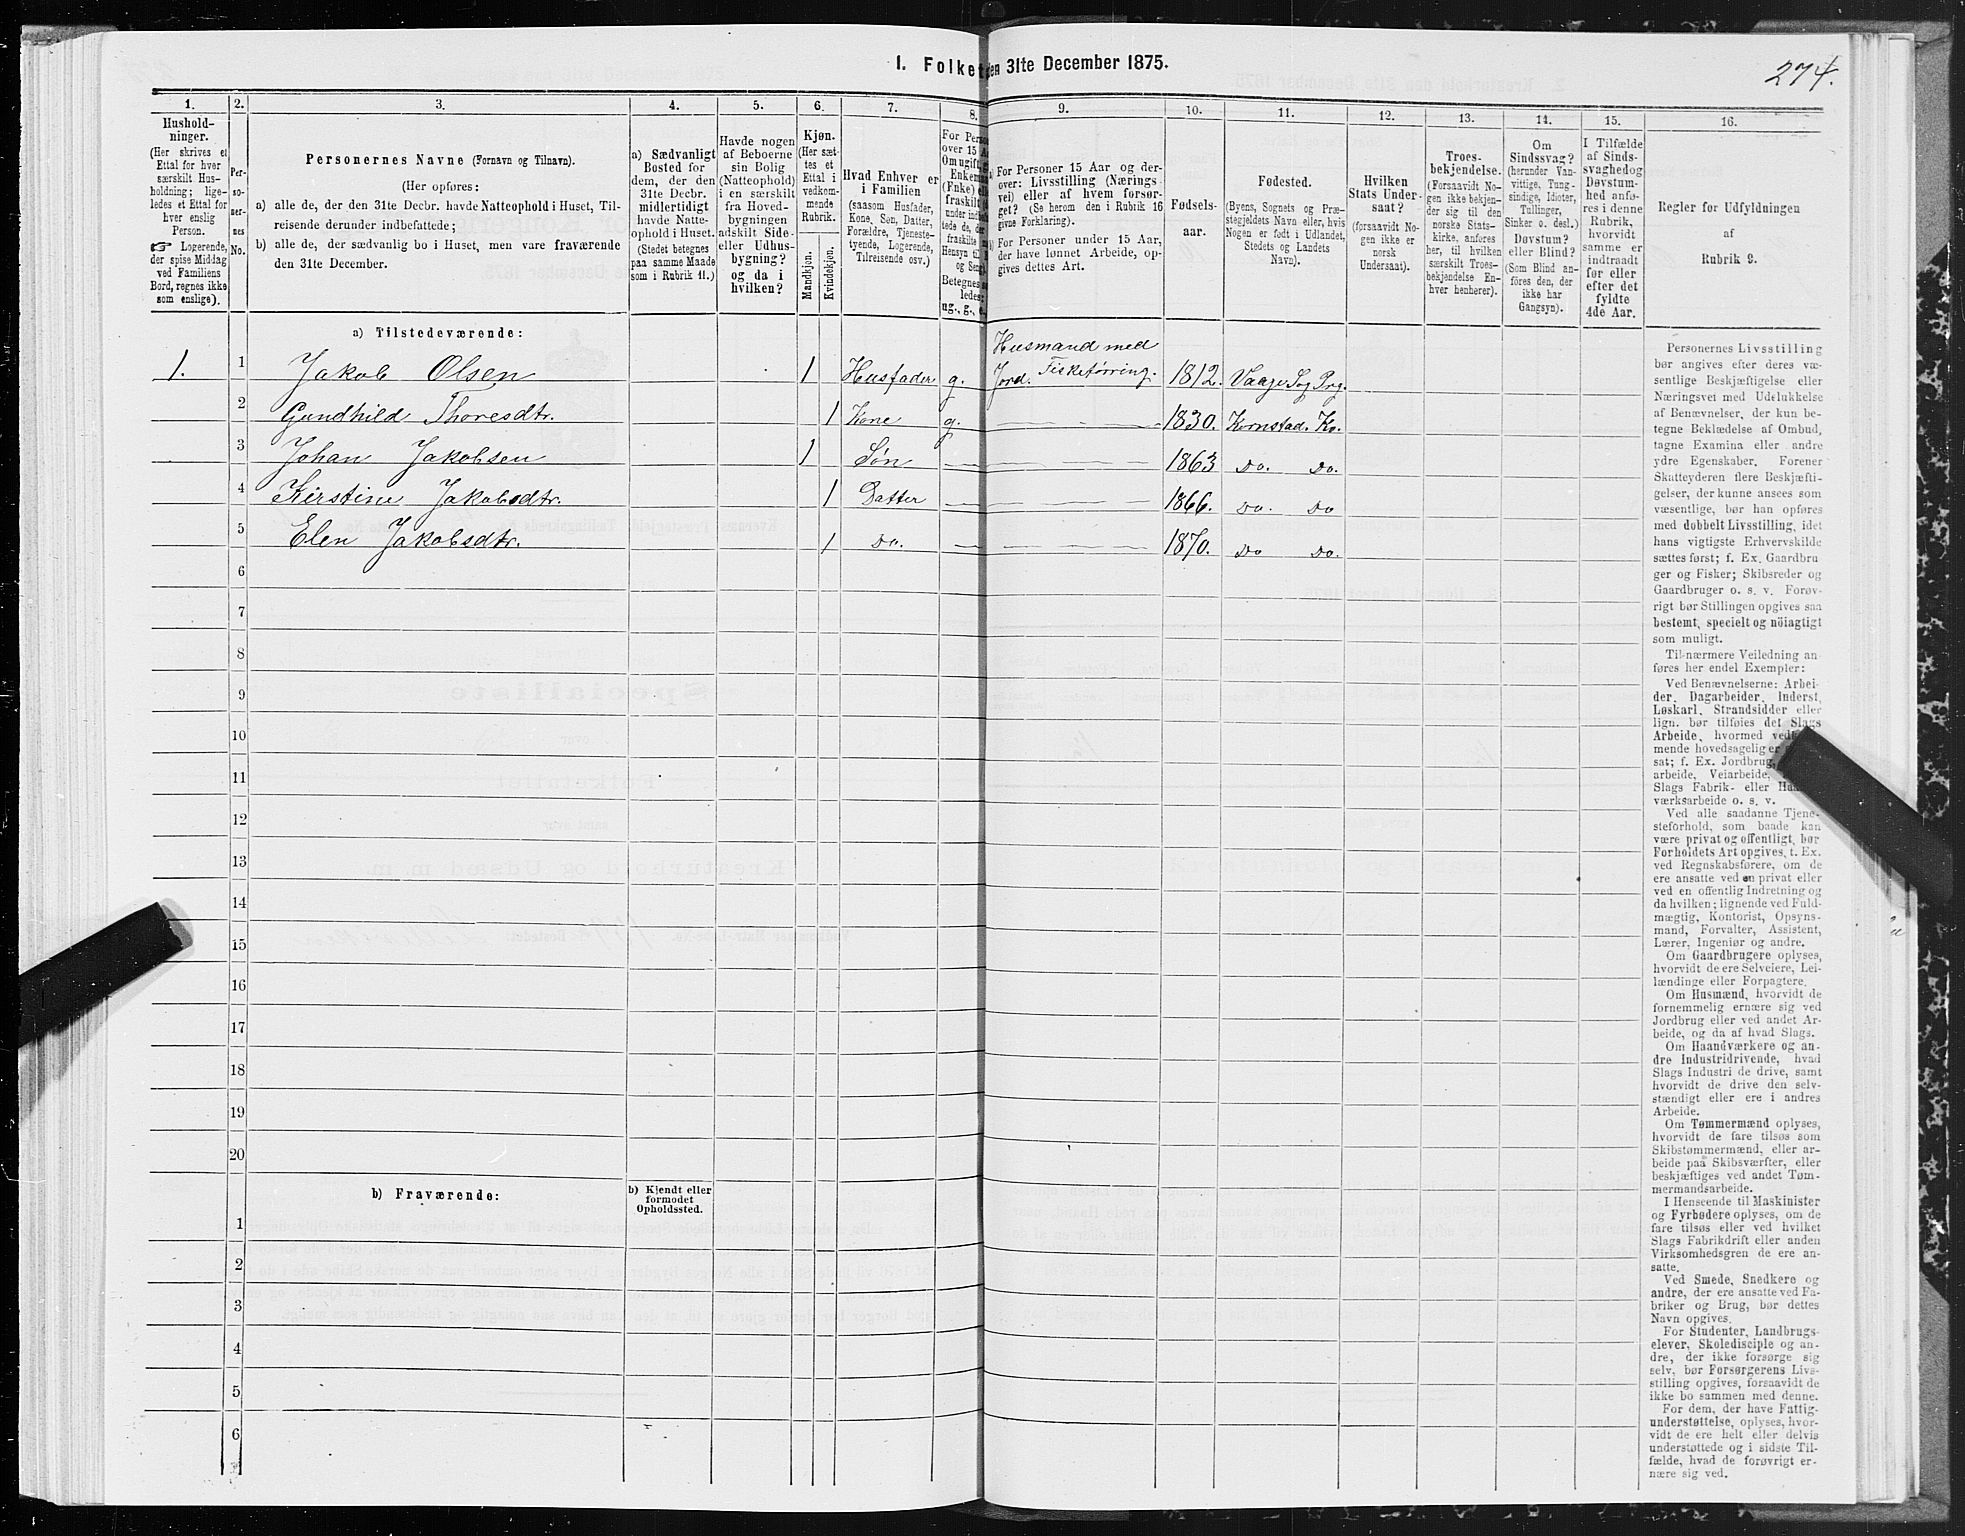 I. Folket den 31te December 1875.
274.
1. 2. 3. 4. 5. 6. 7. 8. 9. 10. 11. 12. 13. 14. 15. 16.
Hushold-
ninger.
(Her skrives et
Ettal for hver
særskilt Hus-
holdning; lige-
ledes et Ettal for
hver enslig
Person.
☞ Logerende,
der spise Middag
ved Familiens
Bord, regnes ikke
som enslige).
Per-
so-
ner-
nes
No.
Personernes Navne (Fornavn og Tilnavn).
(Her opføres:
a) alle de, der den 31te Decbr. havde Natteophold i Huset, Til-
reisende derunder indbefattede;
b) alle de, der sædvanlig bo i Huset, men vare fraværende
den 31te December.
a) Sædvanligt
Bosted for
dem, der den
31te Decbr.
midlertidigt
havde Natte-
ophold i Huset.
(Stedet betegnes
paa samme Maade
som i Rubrik 11.)
Havde nogen
af Beboerne
sin Bolig
(Natteophold)
i en særskilt
fra Hoved-
bygningen
adskilt Side-
eller Udhus-
bygning?
og da i
hvilken?
Kjøn.
(Her sæt-
tes et
Ettal i
vedkom-
mende
Rubrik.
Mandkjøn.
Kvindekjøn.
Hvad Enhver er
i Familien
(saasom Husfader,
Kone, Søn, Datter,
Forældre, Tjeneste-
tyende, Logerende,
Tilreisende osv.)
For Pers
over 15 A
Om ugift, g
Enkem
(Enke) el
fraskilt
under ind
tede de, de
fraskilte
Hensyn til
og Seng
Betegnes s
ledes:
ug., g., e.
For Personer 15 Aar og der-
over: Livsstilling (Nærings-
vei) eller af hvem forsør-
get? (Se herom den i Rubrik 16
givne Forklaring).
For Personer under 15 Aar,
der have lønnet Arbeide, op-
gives dettes Art.
Fødsels-
aar.
Fødested.
(Byens, Sognets og Præ-
stegjeldets Navn eller, hvis
Nogen er født i Udlandet,
Stedets og Landets
Navn).
Hvilken
Stats Under-
saat?
(forsaavidt No-
gen ikke er
norsk
Undersaat).
Troes-
bekjendelse.
(Forsaavidt No-
gen ikke bekjen-
der sig til den
norske Stats-
kirke, anføres
her, til hvilken
særskilt Troes-
bekjendelse En-
hver henhører).
Om
Sindssvag?
(herunder Van-
vittige, Tung-
sindige, Idioter,
Tullinger,
Sinker o. desl.)
Døvstum?
eller Blind?
(Som Blind an-
føres den, der
ikke har
Gangsyn).
I Tilfælde
af Sinds-
svaghed og
Døvstum-
hed anfø-
res i denne
Rubrik,
hvorvidt
samme er
indtraadt
før eller
efter det
fyldte
4de Aar.
Regler for Udfyldningen
af
Rubrik 9.
a) Tilstedeværende:
1. 1 Jakob Olsen 1 Husfader g. Husmand med Jord. Fisketørring. 1812. Vaage Sog Prg.
2 Gundhild Thoresdtr. 1 Kone g. 1830. Kornstad. Kv.
3 Johan Jakobsen 1 Søn 1863 Do. Do.
4 Kirstine Jakobsdtr. 1 Datter 1866. Do. Do
5 Elen Jakobsdtr. 1 Do. 1870. Do Do.
6
7
8
9
10
11
12
13
14
15
16
17
18
19
20
b) Fraværende:
b) Kjendt eller
formodet
Opholdssted.
1
2
3
4
5
6
Personernes Livsstilling
bør angives efter deres væ-
sentlige Beskjæftigelse eller
Næringsvei med Udelukkelse
af Benævnelser, der kun be-
tegne Beklædelse af Ombud,
tagne Examina eller andre
ydre Egenskaber. Forener
Skatteyderen flere Beskjæfti-
gelser, der kunne ansees som
væsentlige, bør han opføres
med dobbelt Livsstilling, idet
hans vigtigste Erhvervskilde
sættes først; f. Ex. Gaardbru
ger og Fisker; Skibsreder og
Gaardbruger o. s. v. Forøv-
rigt bør Stillingen opgives saa
bestemt, specielt og nöiagtigt
som muligt.
Til nærmere Veiledning an-
føres her endel Exempler:
Ved Benævnelserne: Arbei-
der, Dagarbeider, Inderst,
Løskarl, Strandsidder eller
lign. bør tilføies det Slags
Arbeide, hvormed ved
mende hovedsagelig er
sat; f. Ex. Jordbrug,
arbeide, Veiarbeide,
Slags Fabrik- eller Haa
værksarbeide o. s. v.
Ved alle saadanne Tjene-
steforhold, som baade kan
være privat og offentligt, bør
Forholdets Art opgives, t. Ex.
ved Regnskabsførere, om de
ere ansatte ved en privat eller
ved en offentlig Indretning og
da hvilken; lignende ved Fuld-
mægtig, Kontorist, Opsyns-
mand, Forvalter, Assistent,
Lærer, Ingeniør og andre.
Om Gaardbrugere oplyses,
hvorvidt de ere Selveiere, Lei-
lændinge eller Forpagtere.
Om Husmænd, hvorvidt de
fornemmelig ernære sig ved
Jordbrug eller ved andet Ar-
beide, og da af hvad Slags.
Om Haandværkere og an-
dre Industridrivende, hvad
Slags Industri de drive, samt
hvorvidt de drive den selv-
stændigt eller ere i andres
Arbeide.
Om Tømmermænd oplyses,
hvorvidt de fare tilsøs som
Skibstømmermænd, eller ar-
beide paa Skibsværfter, eller
beskjæftiges ved andet Tøm-
mermandsarbeide.
I Henseende til Maskinister
og Fyrbødere oplyses, om de
fare tilsøs eller ved hvilket
Slags Fabrikdrift eller anden
Virksomhedsgren de ere an-
satte.
Ved Smede, Snedkere og
andre, der ere ansatte ved Fa-
briker og Brug, bør dettes
Navn opgives.
For Studenter, Landbrugs-
elever, Skoledisciple og an-
dre, der ikke forsørge sig
selv, bør Forsørgerens Livs-
stilling opgives, forsaavidt de
ikke bo sammen med denne.
For dem, der have Fattig-
understøttelse, oplyses, hvor-
vidt de ere helt eller delvis
understøttede og i sidste Til-
fælde, hvad de forøvrigt er-
nære sig ved.